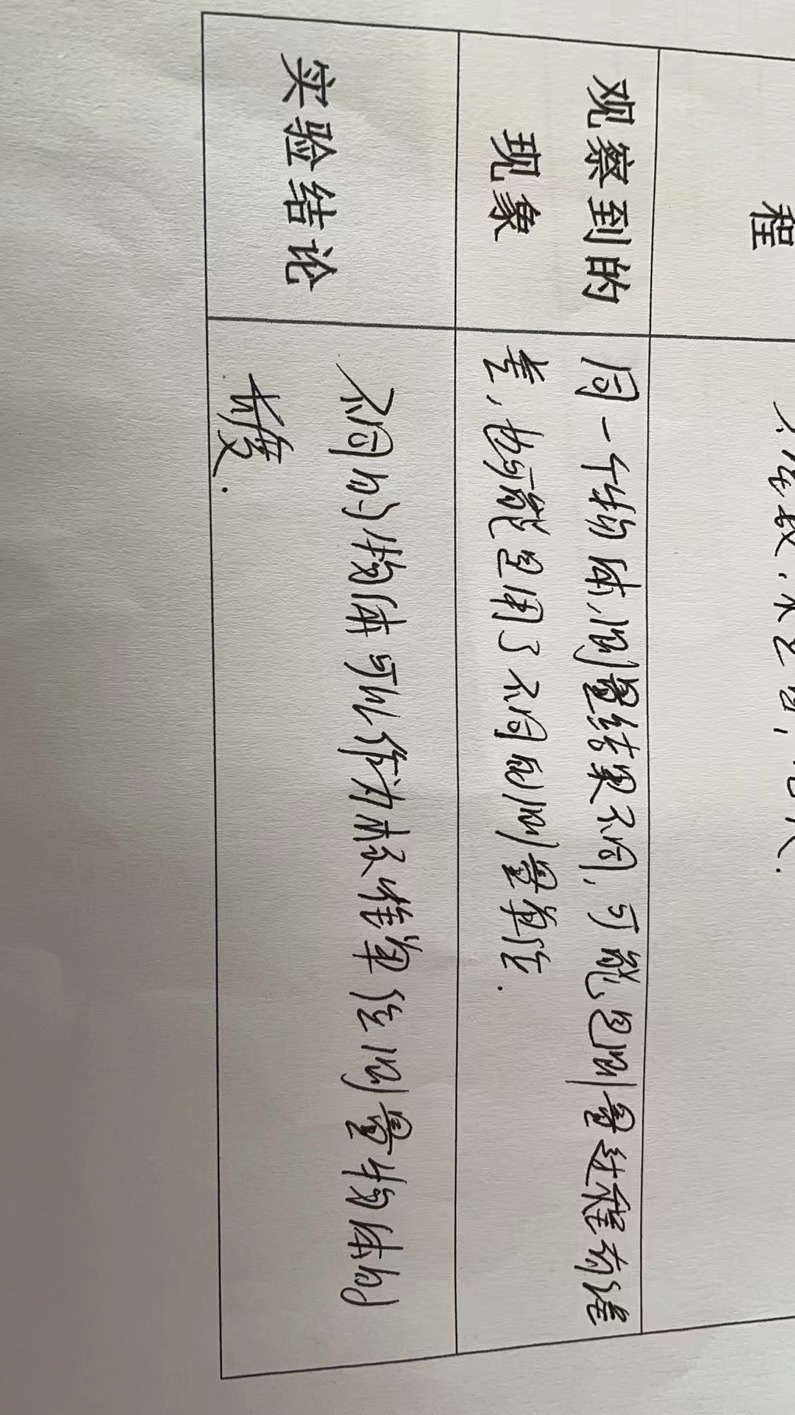 程
观察到的
现象
同一个物体,测量结果不同,可能是测量过程有误
差,也可能是用了不同的测量单位.
实验结论
不同的物体可以作为标准单位测量物体的
长度.